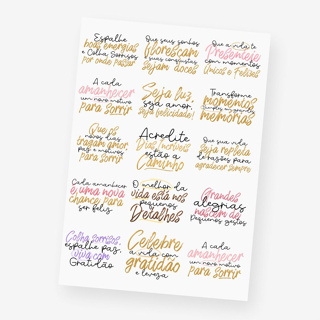 Espalhe
boas energias
e Colha Sorrisos
por onde passar
Que seus sonhos
floresçam
e suas conquistas
sejam doces
Que a vida te
Presenteie
com momentos
Únicos e Felizes
A cada
amanhecer
um novo motivo
para sorrir
Seja luz,
seja amor,
seja felicidade!
Transforme
momentos
simples em grandes
memórias
Que os
novos dias
tragam amor,
paz e motivos
para sorrir
Acredite
Dias Incríveis
estão a
Caminho
Que sua vida
seja repleta
de razões para
agradecer sempre
Cada amanhecer
é uma nova
chance para
ser feliz
O melhor da
vida está nos
pequenos
Detalhes
Grandes
alegrias
nascem de
Pequenos gestos
Colha sorrisos,
espalhe paz,
viva com
Gratidão
Celebre
a vida com
gratidão
e leveza
A cada
amanhecer
um novo motivo
para sorrir